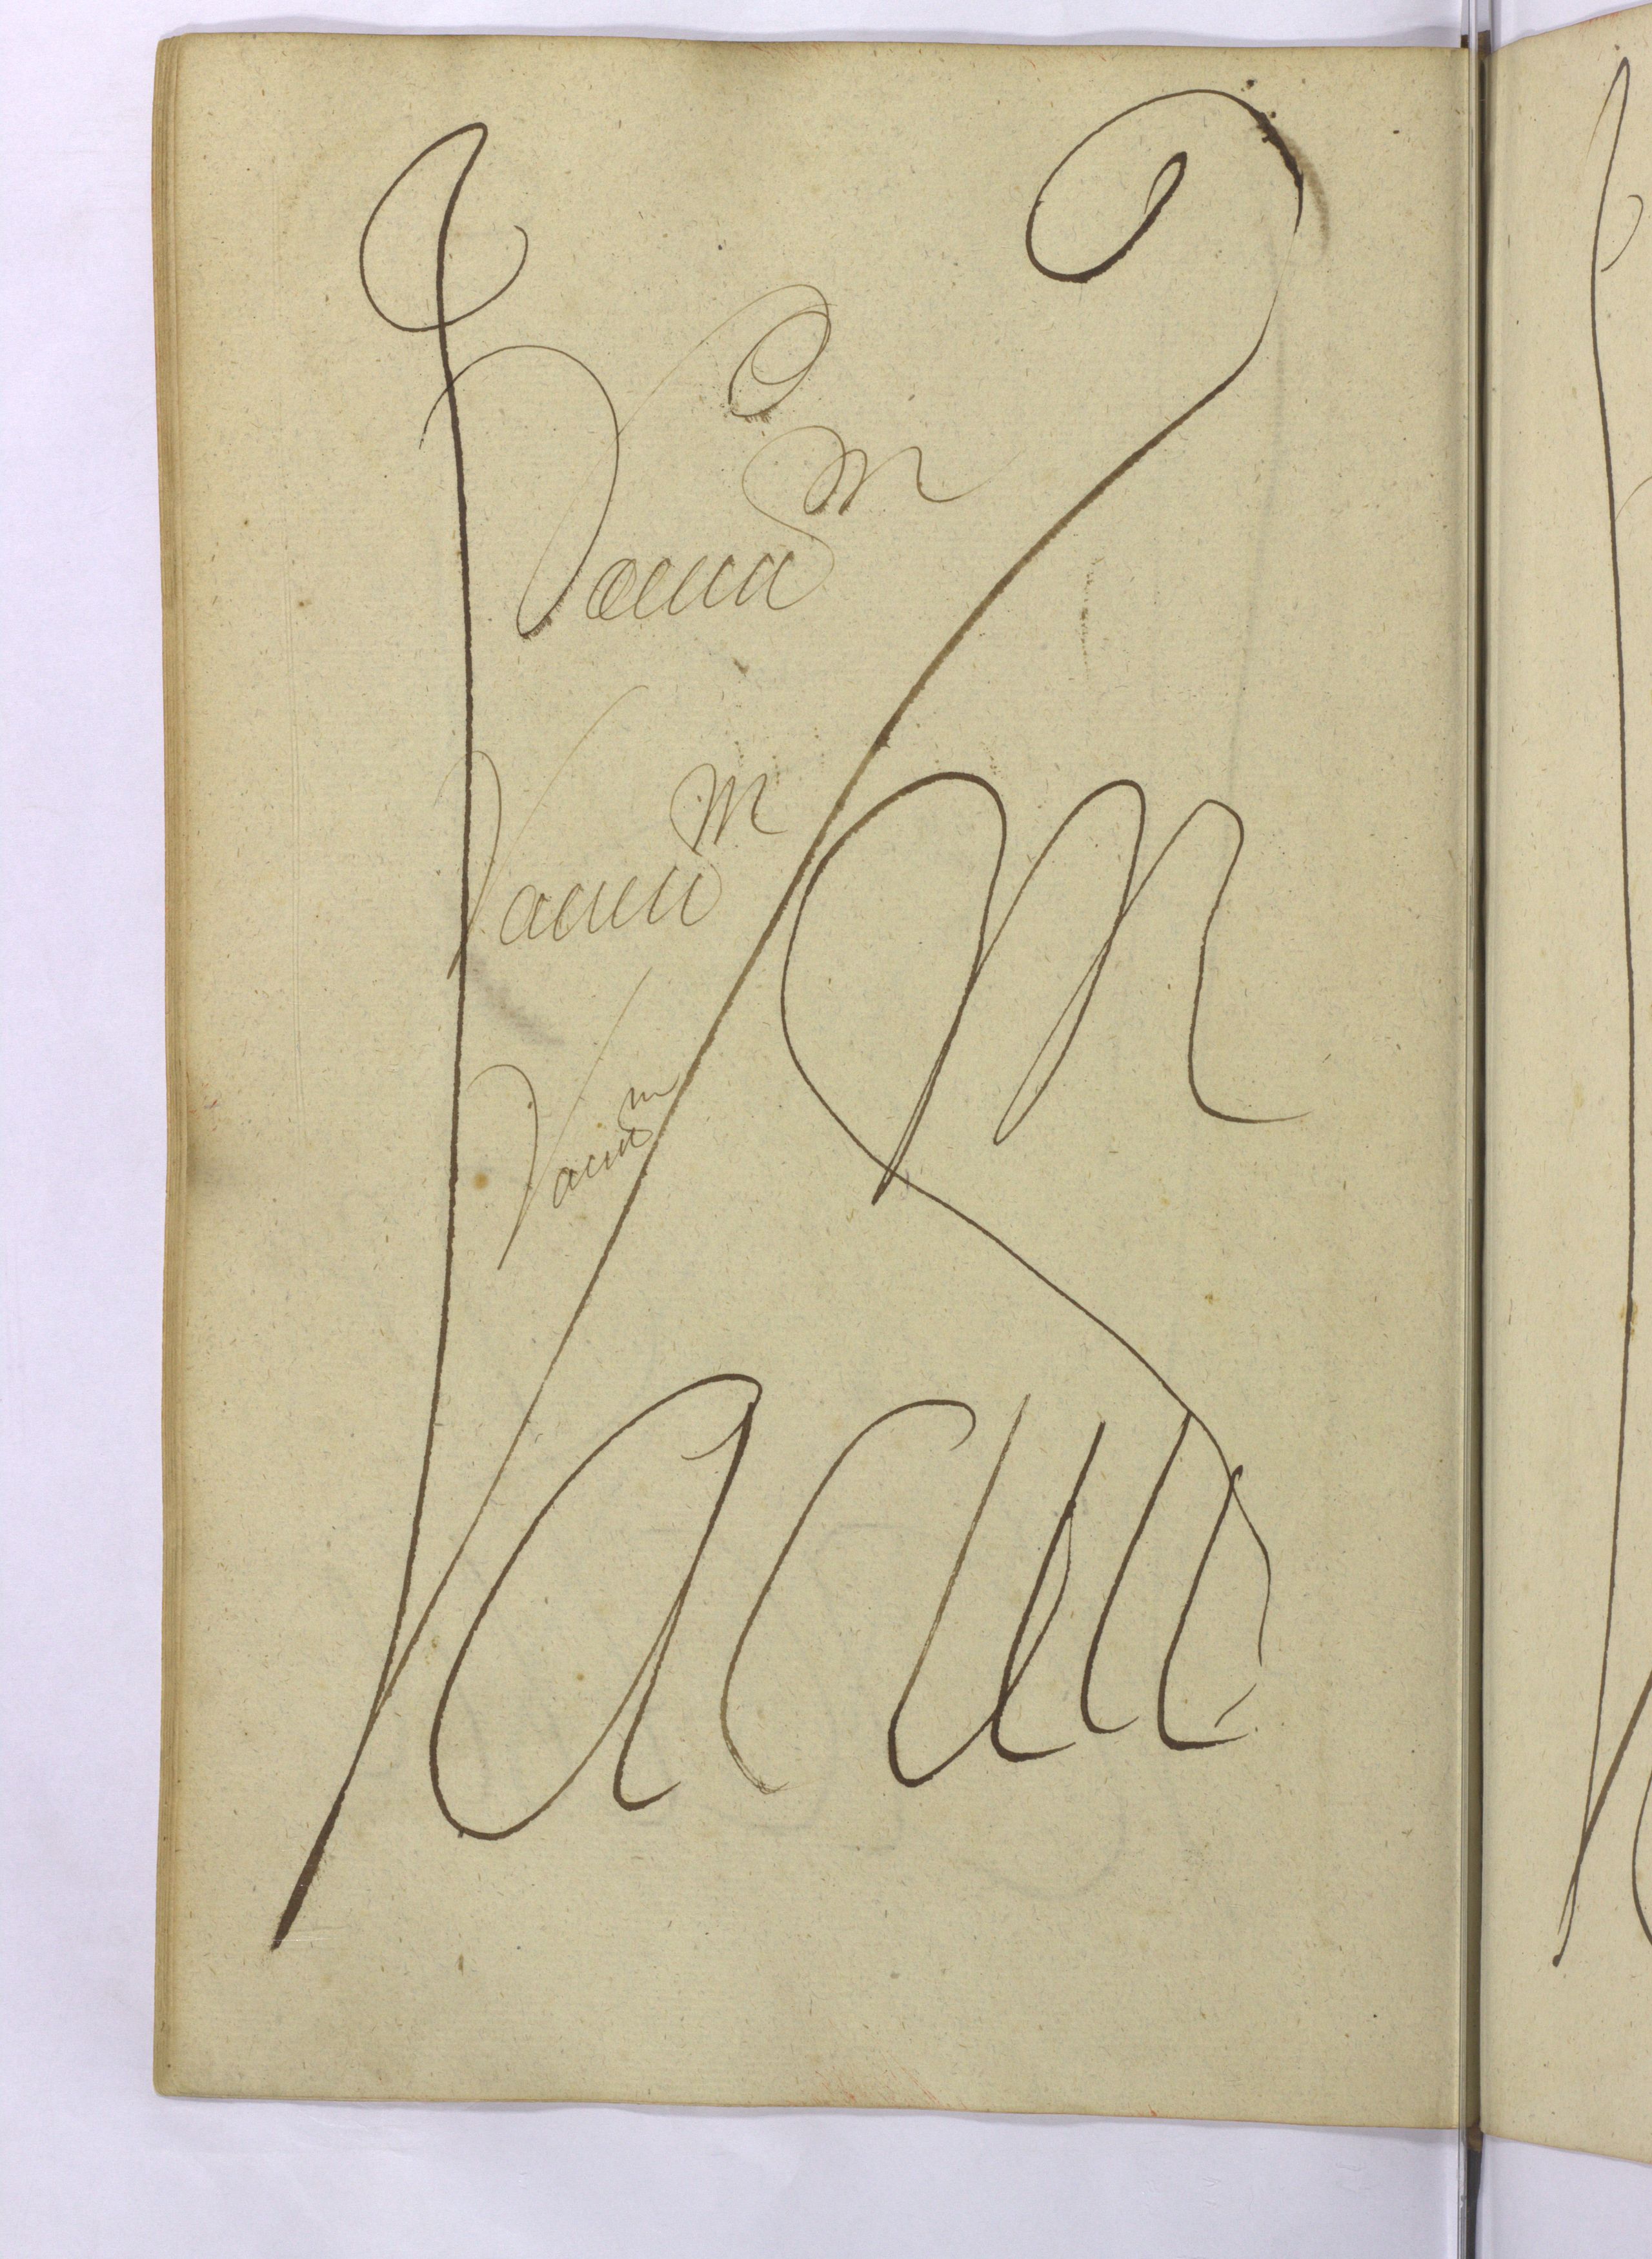 Vacuum
Vacuum
Vacuum
Vacuum